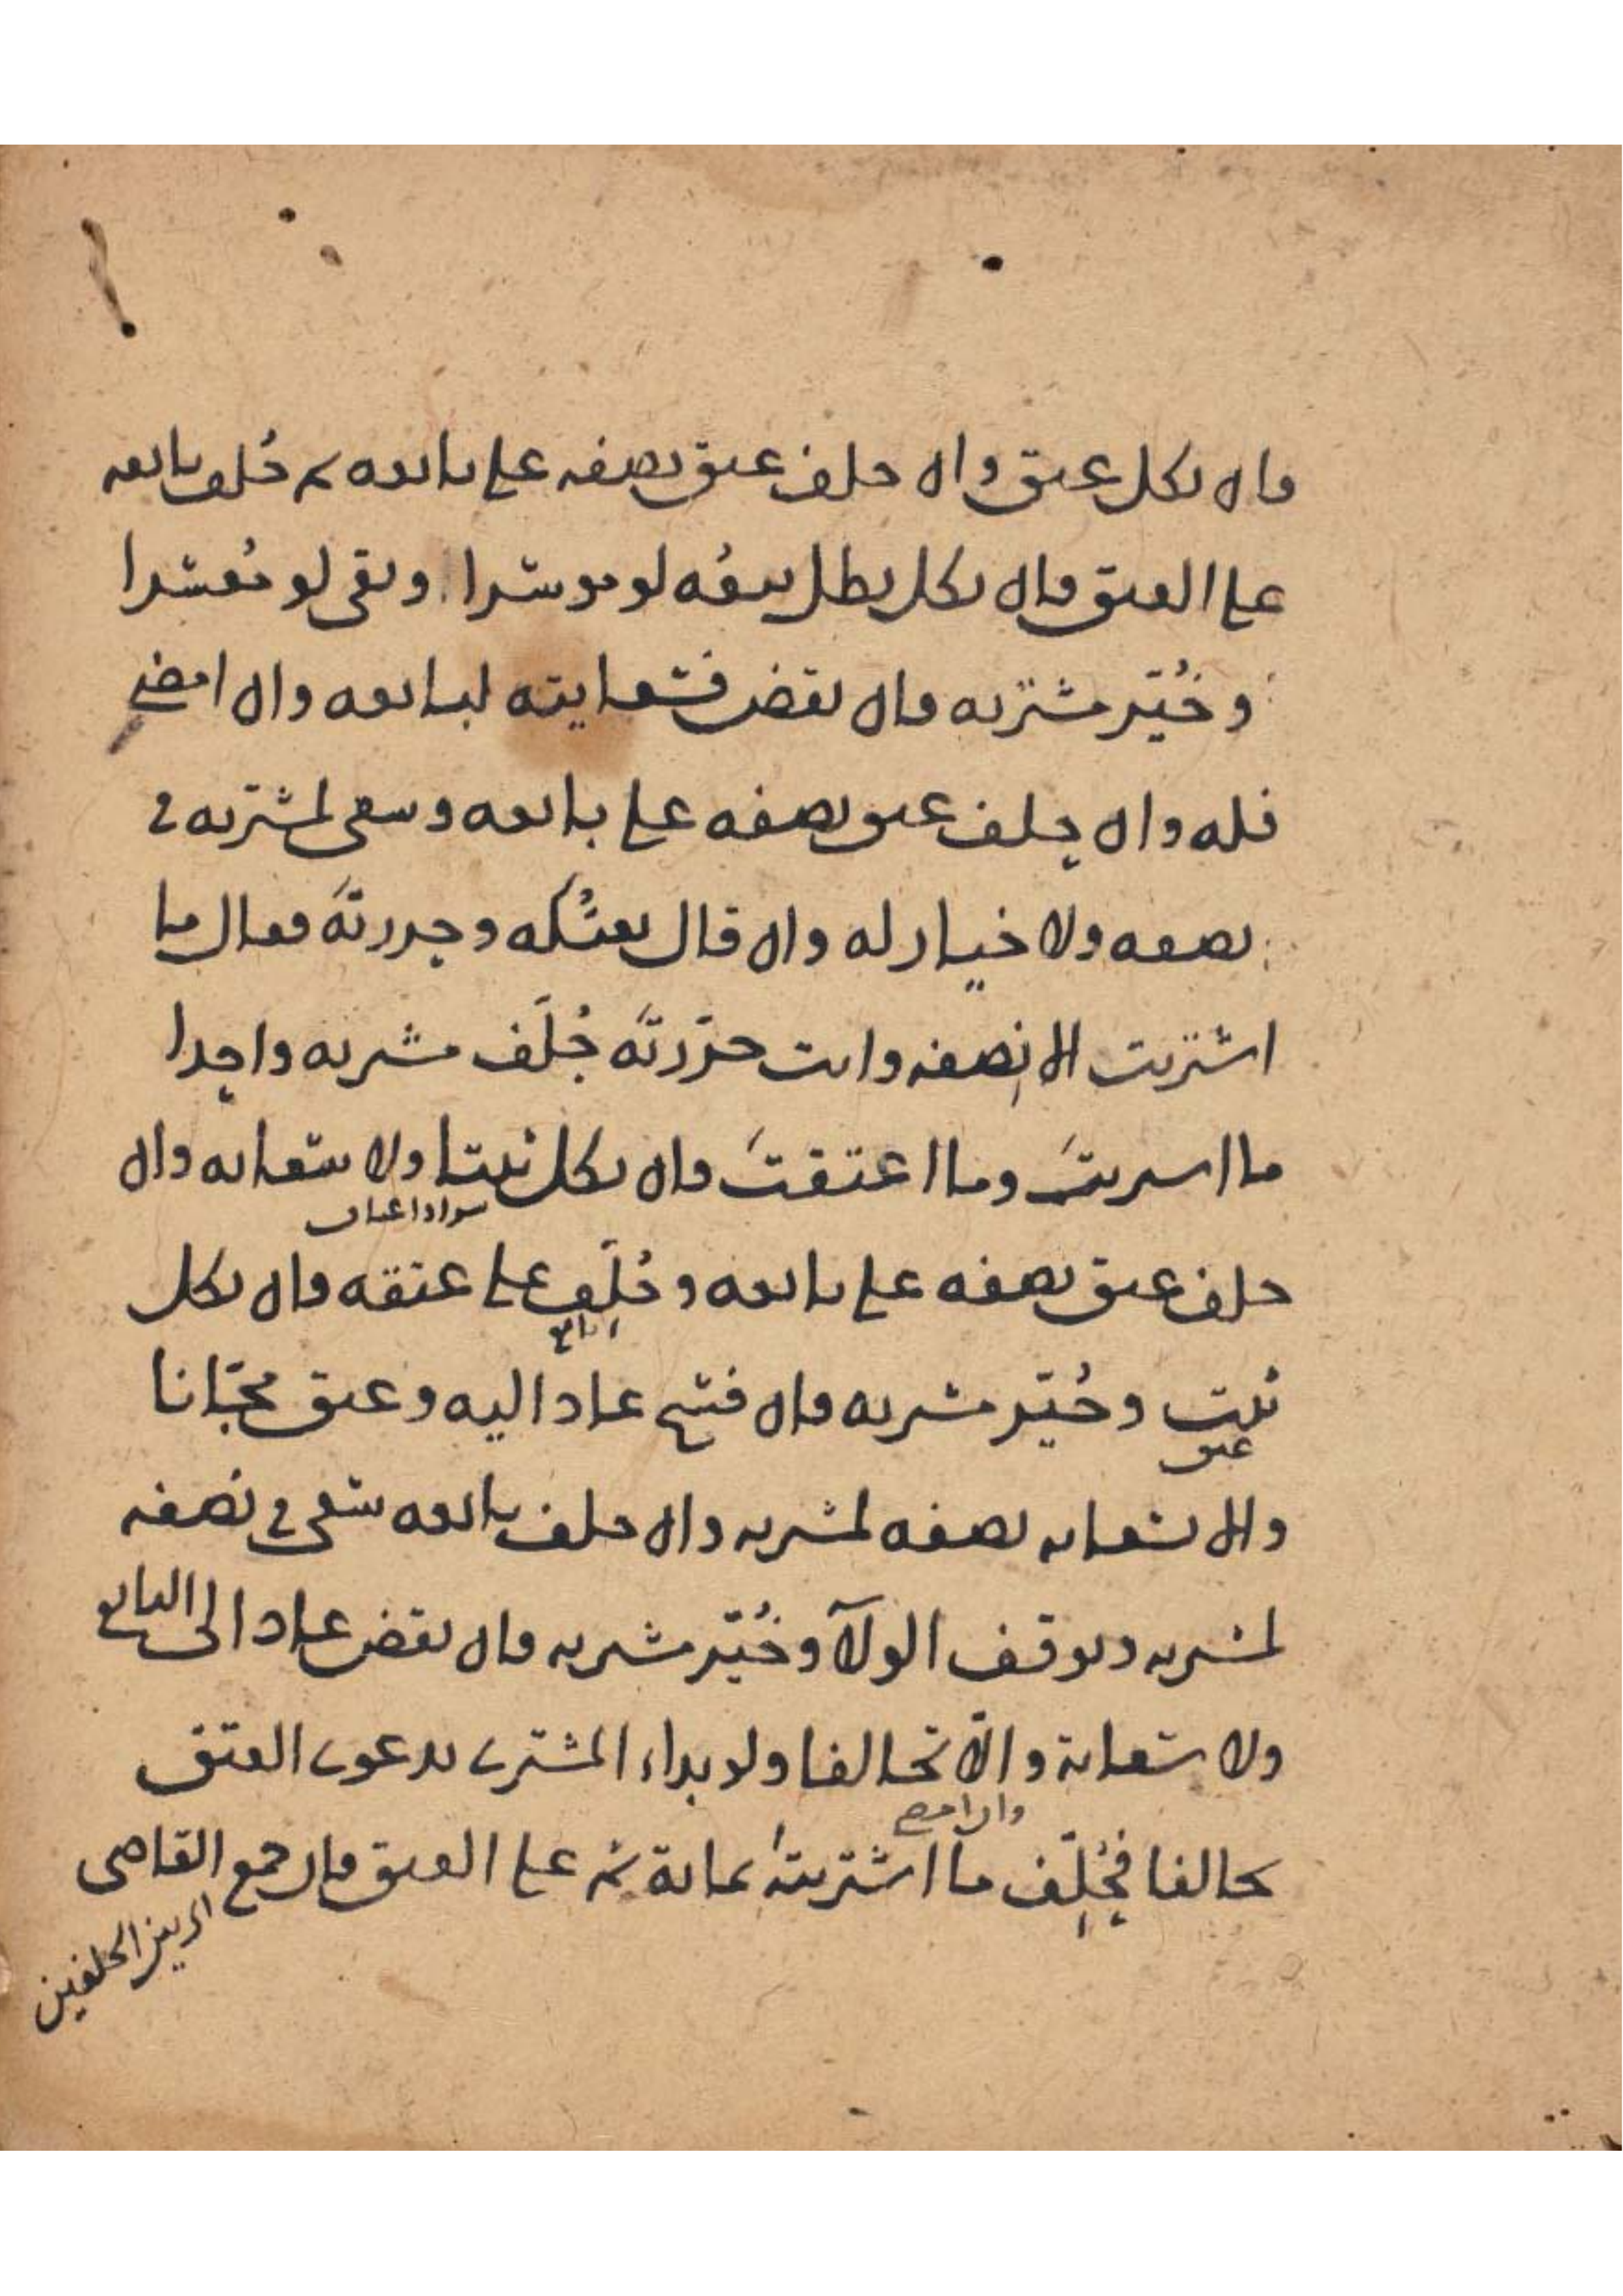 فان نكل عتق وان حلف عتق نصفه على بائعه ثم حُلف بائعه
على العتق فان نكل بطل بيعُه لو موسرا وبقى لو مُعسرا
وخُيّر مشتريه فان نقض فسعايته لبائعه وان امضى
فله وان حلف عتق نصفه على بائعه وسعى لمشتريه في
نصفه ولا خيار له وان قال بعتُكه وحررتَه فقال ما
اشتريت الا نصفه وانت حرّرتَه حُلّف مشتريه واحدا
ما اشتريتُ وما اعتقتُ فان نكل ثبتا ولا سعايه وان
حلف عتق نصفه على بائعه وحُلِّف على عتقه فان نكل
البايع
ثبت وخُيّر مشتريه فان فسخ عاد اليه وعتق مجّانا
عتق
والا سعايه نصفه لمشتريه وان حلف بائعه سعى في نصفه
لمشتريه ويوقف الولآ وخُيّر مشتريه فان نقض عاد الى البائع
ولا سعاية والّا تحالفا ولو بداء المشترى بدعوى العتق
وان امضى
تحالفا فيُحلّف ما اشتريتُه بمائة ثم على العتق فان جمع القاضى
بين الحلفين